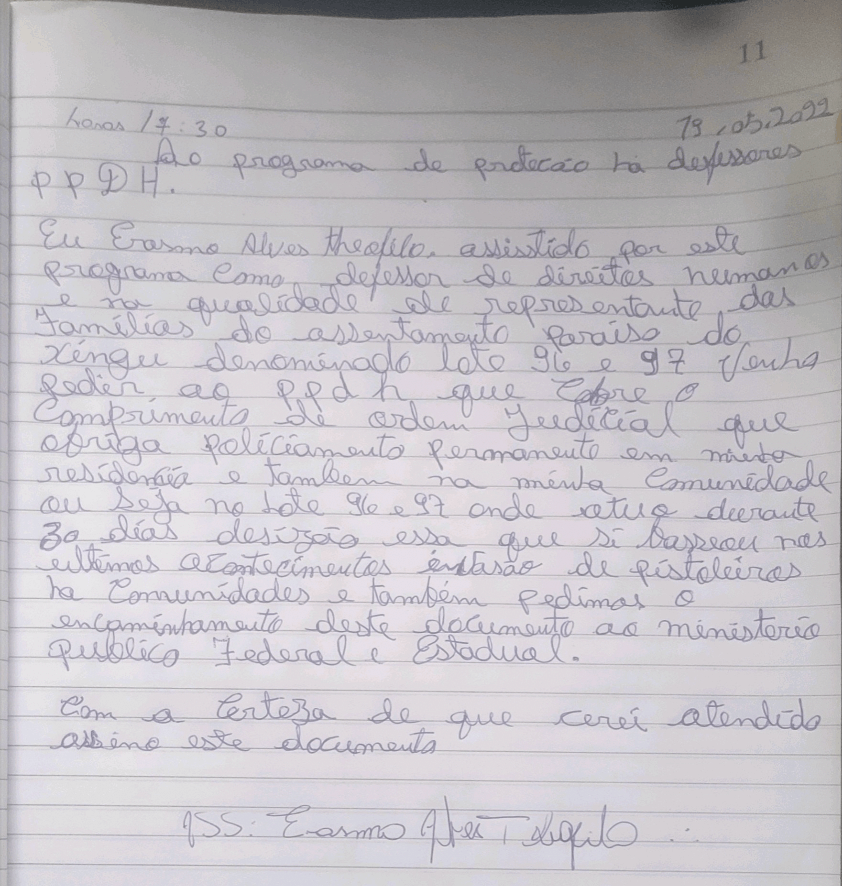 11
horas 17:30
19.05.2022
Ao programa de protecão há defessores
PPDH.
Eu Erasmo Alves theofilo. assistido por este
programa Como defessor de direitos humanos
e na qualidade de representante das
famílias do assentamento paraiso do
Xingu denominado lote 96 e 97 Venho
pedir ao ppdh que Cobre o
Comprimento de ordem Judicial que
obriga policiamento permanente em minha
residencia e tambem na minha Comunidade
ou Seja no lote 96 e 97 onde atuo durante
30 dias desizão essa que si basseou nos
ultimos acontecimentos invasão de pistoleiros
ha Comunidades e também pedimos o
encaminhamento deste documento ao ministerio
publico Federal e Estadual.
Com a Certeza de que cerei atendido
assino este documento
ASS: Erasmo Alves Teofilo